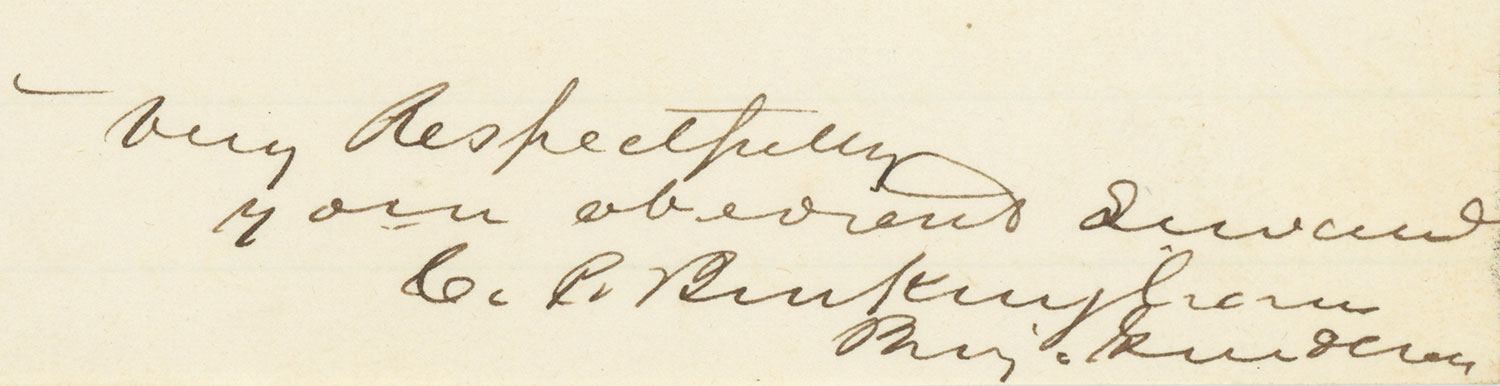 Very Respectfully
your obedient Servant
C. P. Buckingham
Brig. General